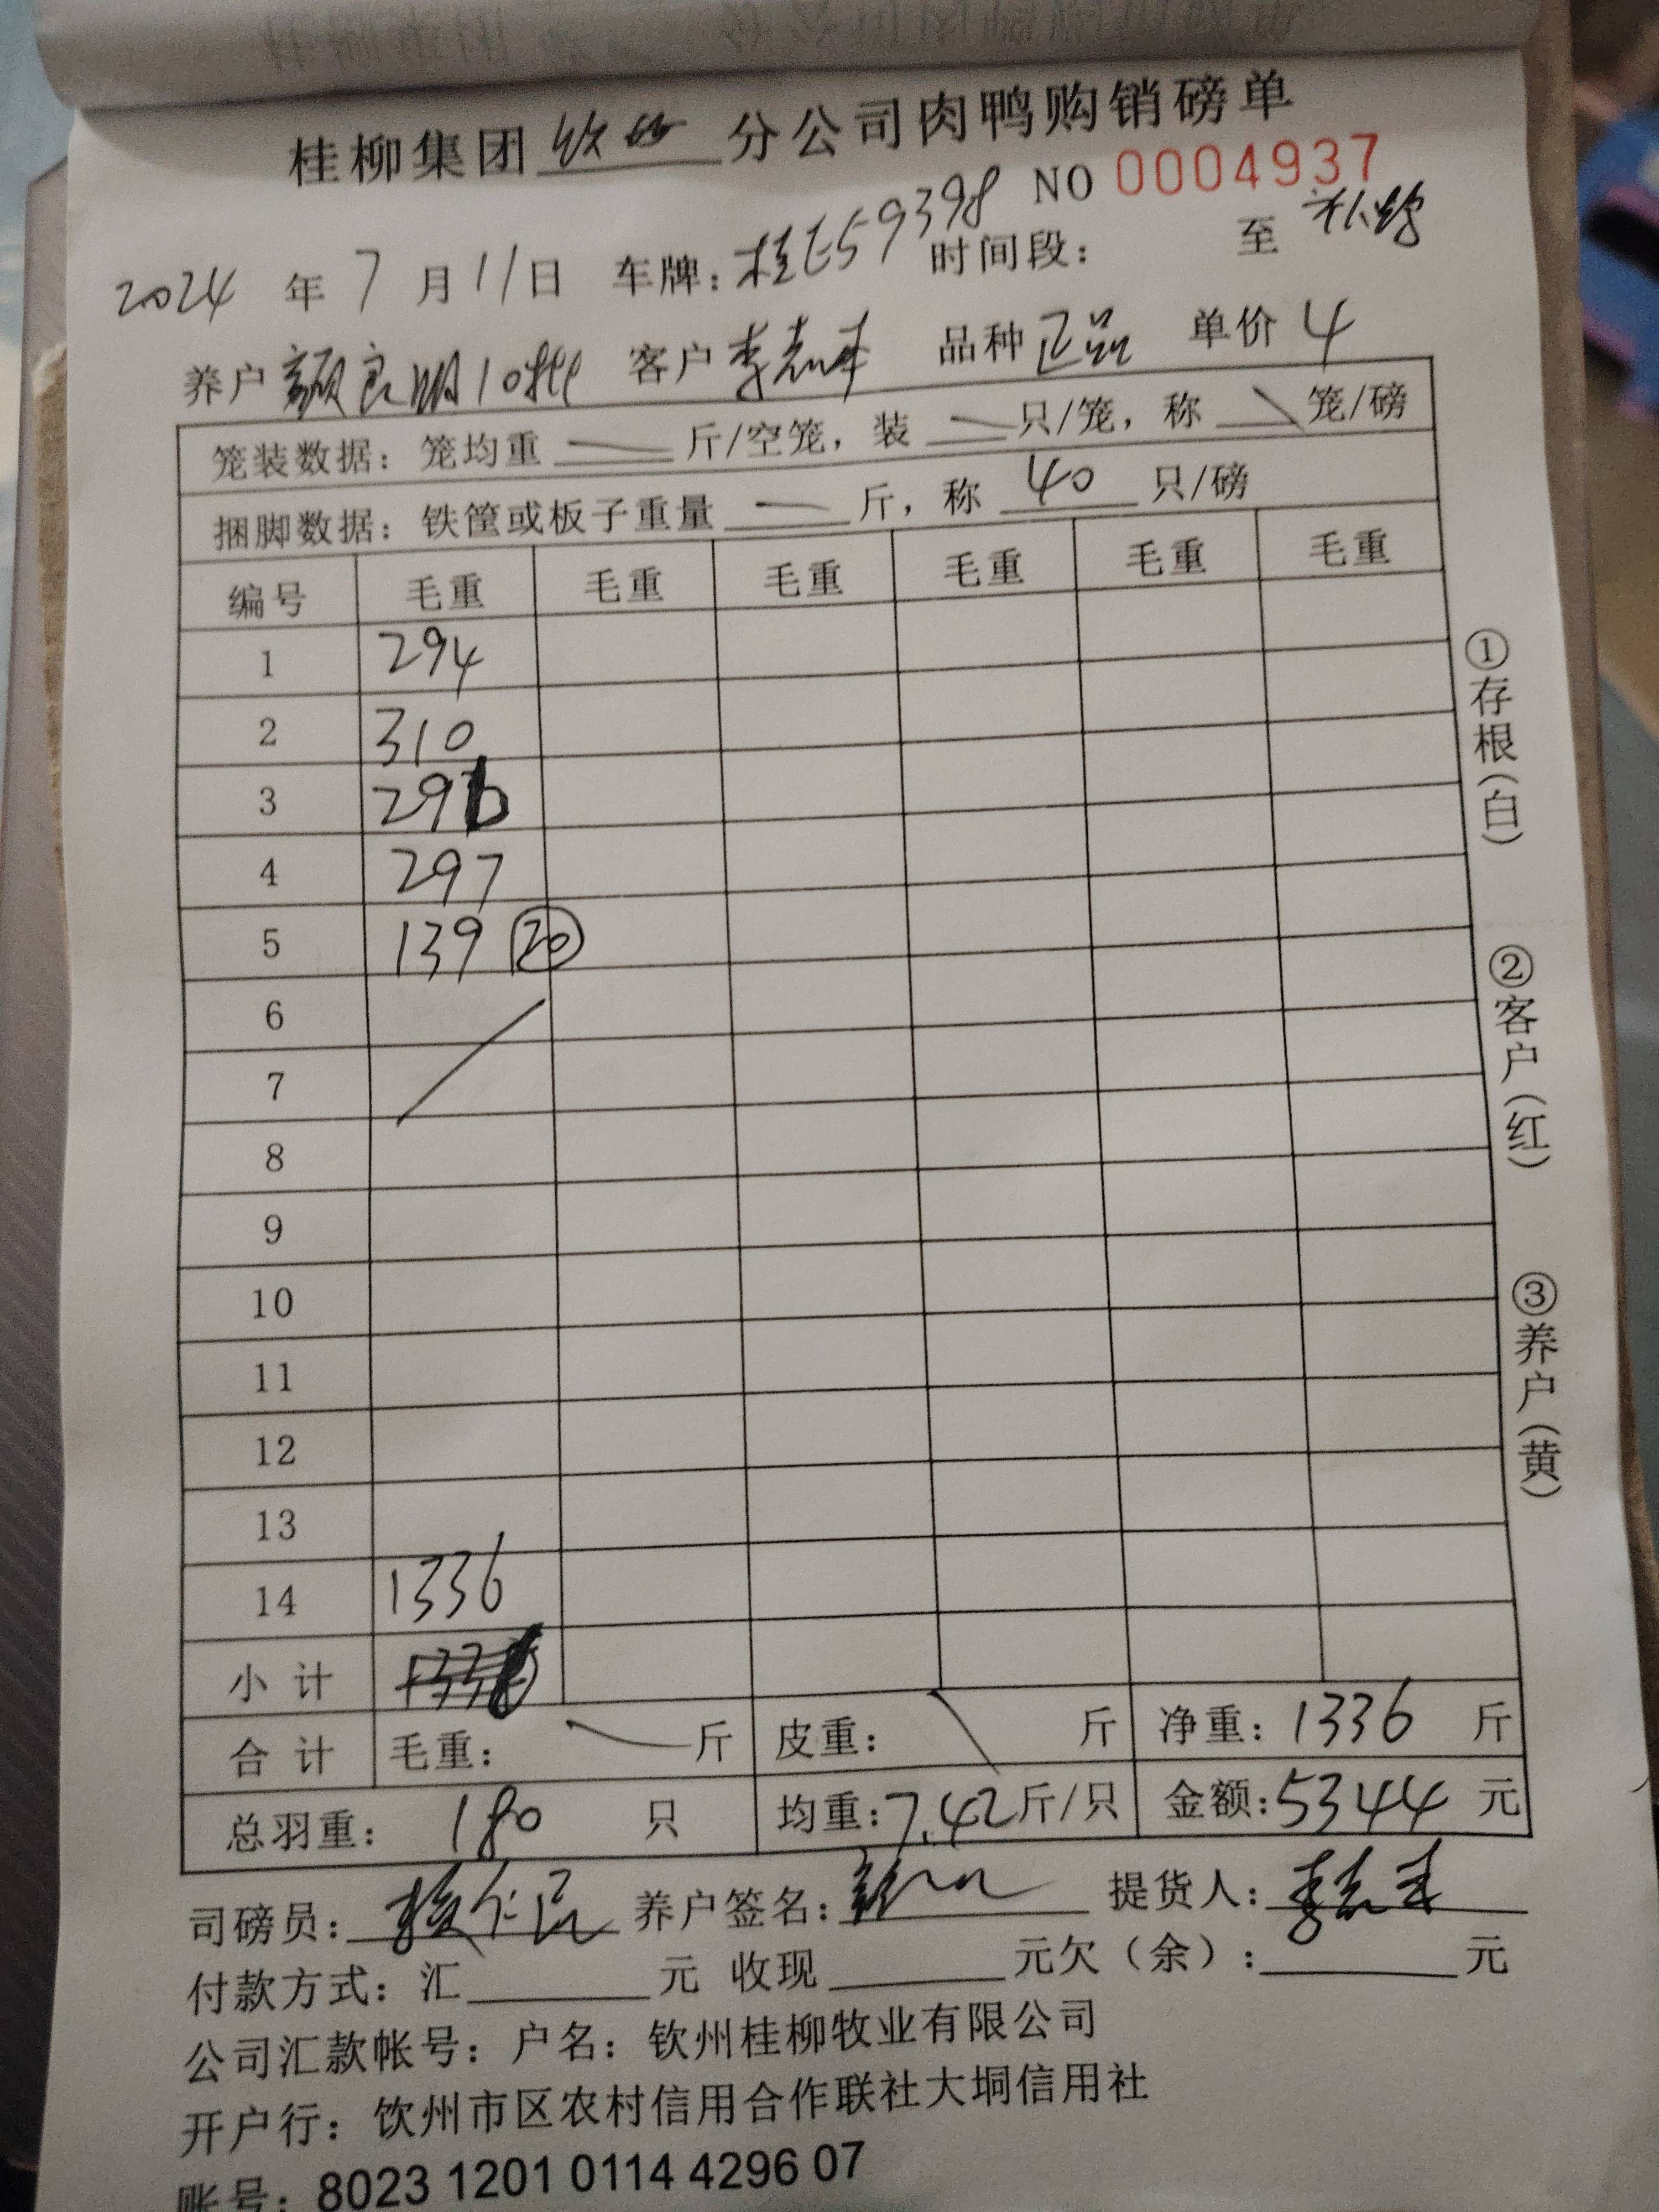 桂柳集团钦州分公司肉鸭购销磅单
NO 0004937
2024 年 7 月 11 日 车牌：桂E59398 时间段： 至 补磅
养户 颜良明10批 客户 李志丰 品种 正品 单价 4
笼装数据：笼均重 斤/空笼，装 只/笼，称 笼/磅
捆脚数据：铁筐或板子重量 斤，称 40 只/磅
编号 毛重 毛重 毛重 毛重 毛重 毛重
1 294
2 310
3 296
4 297
5 139 20
6
7
8
9
10
11
12
13
14 1336
小计
合计 毛重： 斤 皮重： 斤 净重：1336 斤
总羽重： 180 只 均重：7.42斤/只 金额：5344 元
司磅员： 养户签名： 提货人：李志丰
付款方式：汇 元 收现 元欠（余）： 元
公司汇款帐号：户名：钦州桂柳牧业有限公司
开户行：钦州市区农村信用合作联社大垌信用社
账号：8023 1201 0114 4296 07
①存根（白）
②客户（红）
③养户（黄）